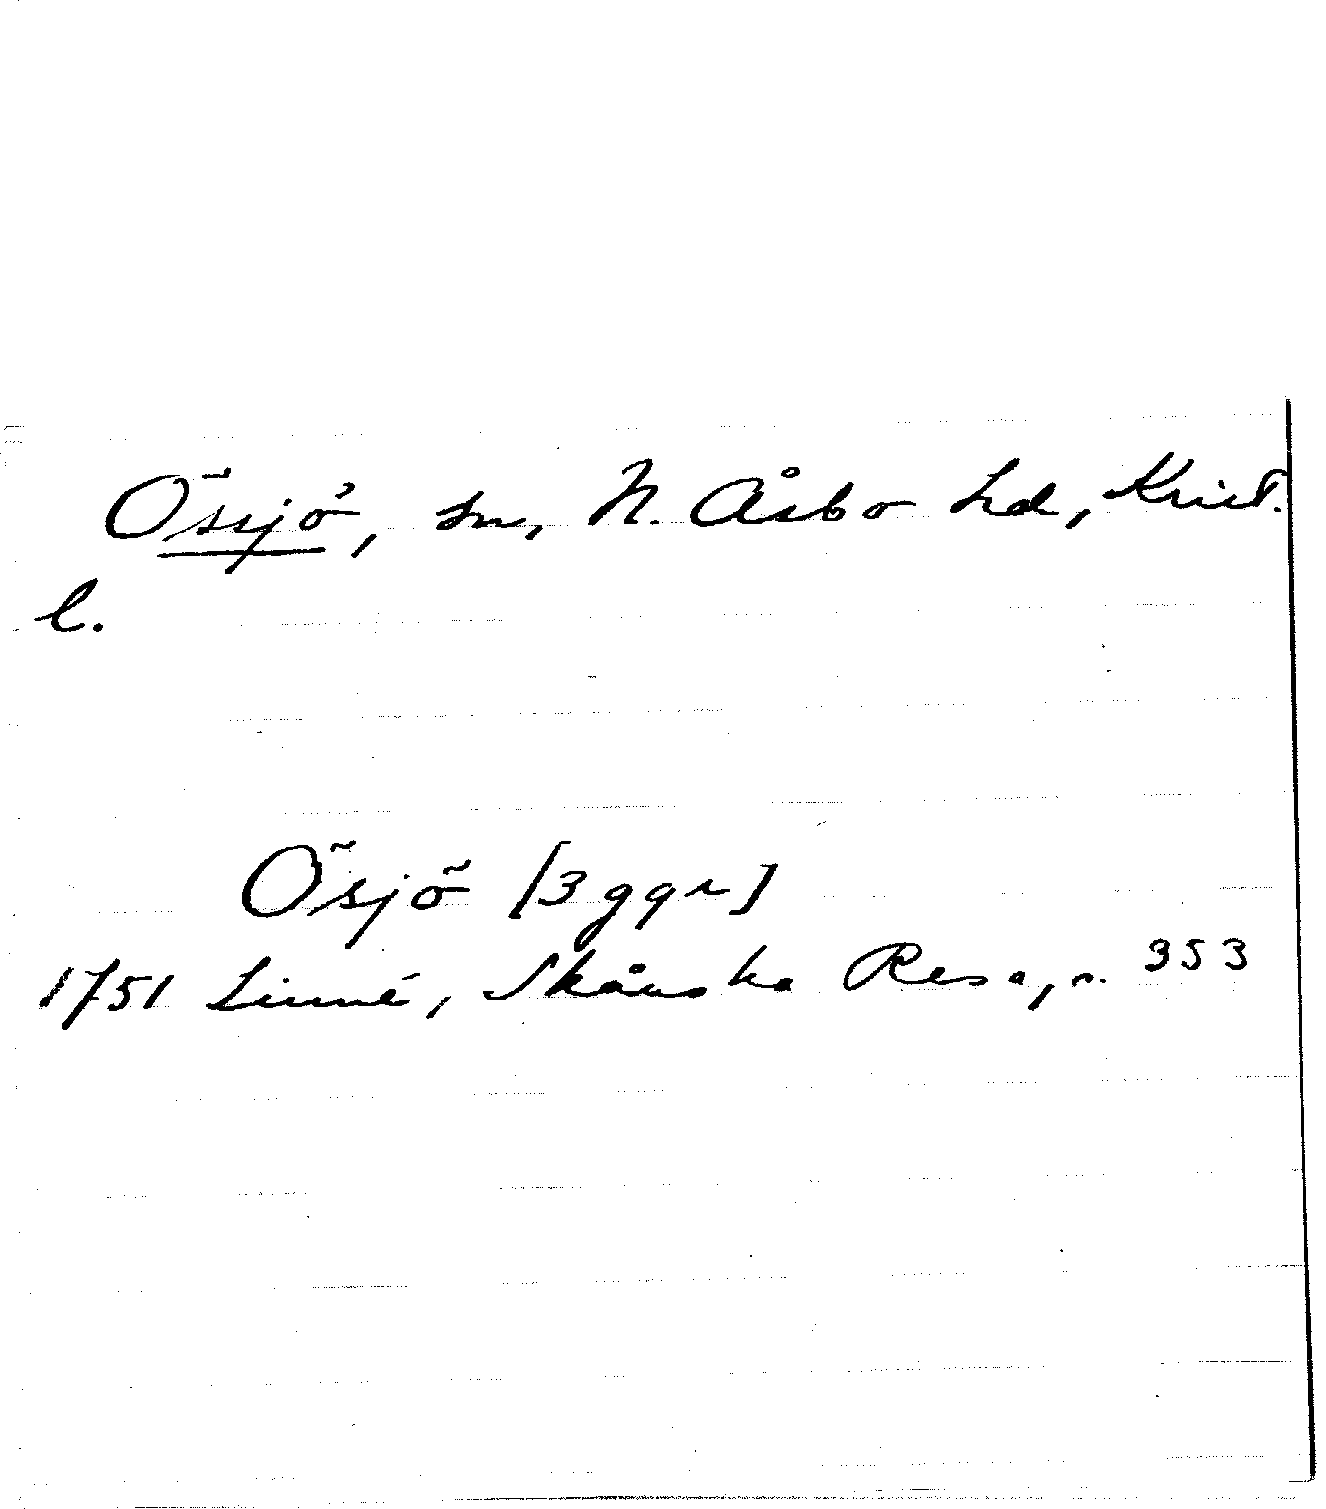 Össjö, sn, N. Åsbo hd, Krist.
l.
Ösjö [3 ggr]
1751 Linné, Skånska Resa, s. 353